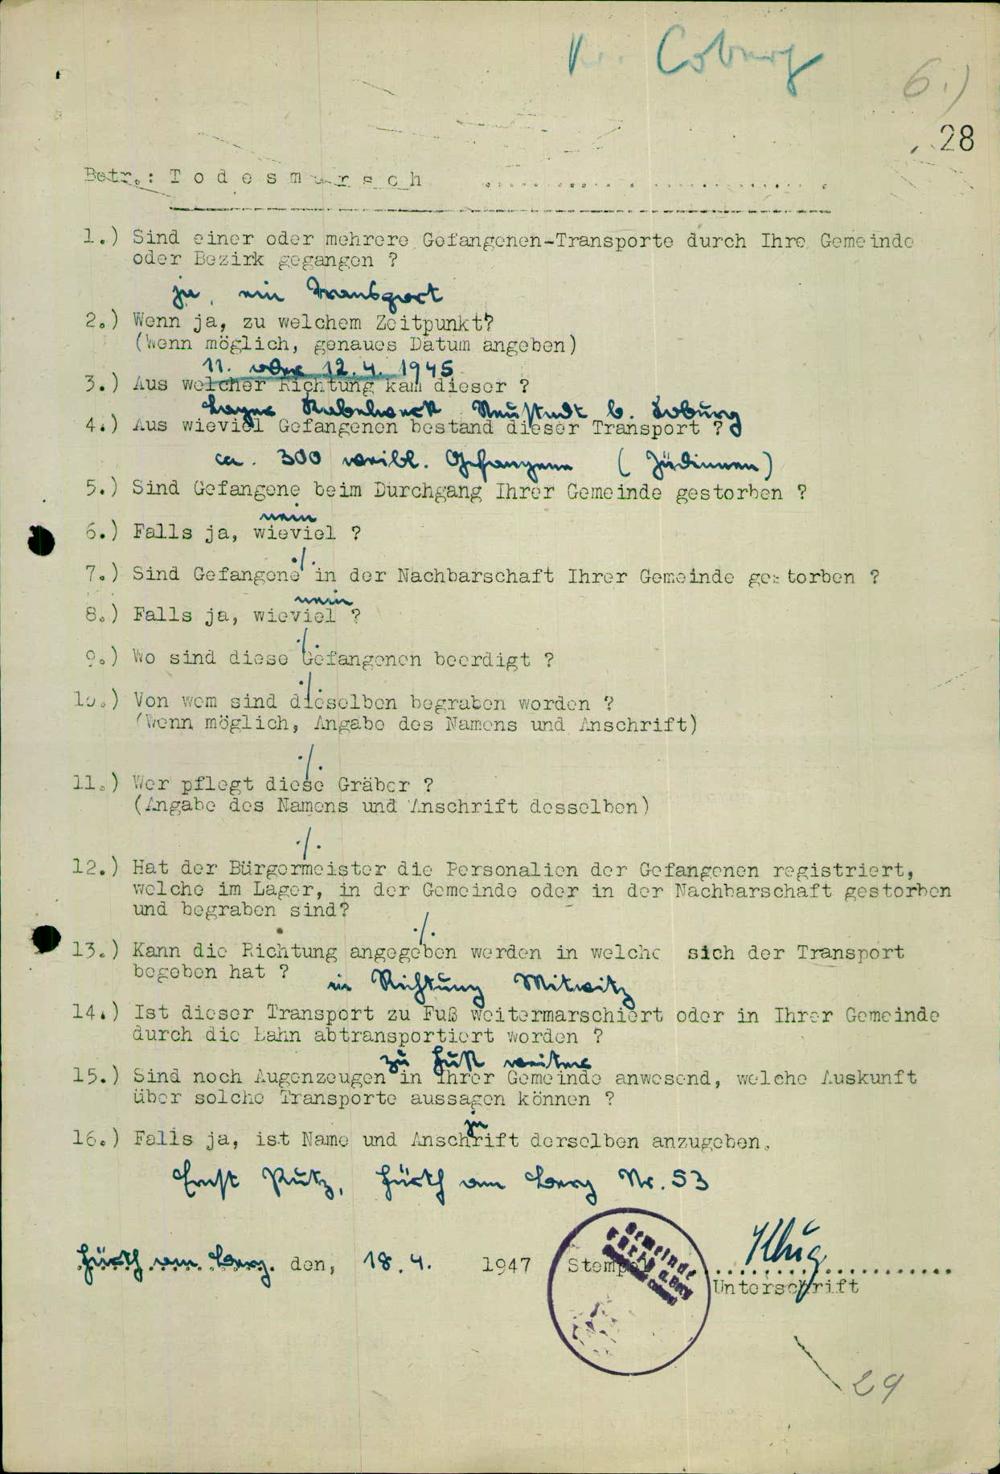 Kr. Coburg
6.)
28
Betr.: Todesmarsch
1.) Sind einer oder mehrere Gefangenen-Transporte durch Ihre Gemeinde
oder Bezirk gegangen ?
ja, ein Transport
2.) Wenn ja, zu welchem Zeitpunkt?
(Wenn möglich, genaues Datum angeben)
11. oder 12.4. 1945
3.) Aus welcher Richtung kam dieser ?
Lager Neustadt b. Coburg
4.) Aus wieviel Gefangenen bestand dieser Transport ?
ca. 300 weibl. Gefangene (Jüdinnen)
5.) Sind Gefangene beim Durchgang Ihrer Gemeinde gestorben ?
nein
6.) Falls ja, wieviel ?
./.
7.) Sind Gefangene in der Nachbarschaft Ihrer Gemeinde gestorben ?
nein
8.) Falls ja, wieviel ?
./.
9.) Wo sind diese Gefangenen beerdigt ?
./.
10.) Von wem sind dieselben begraben worden ?
(Wenn möglich, Angabe des Namens und Anschrift)
./.
11.) Wer pflegt diese Gräber ?
(Angabe des Namens und Anschrift desselben)
./.
12.) Hat der Bürgermeister die Personalien der Gefangenen registriert,
welche im Lager, in der Gemeinde oder in der Nachbarschaft gestorben
und begraben sind?
./.
13.) Kann die Richtung angegeben werden in welche sich der Transport
begeben hat ?
in Richtung Mitwitz
14.) Ist dieser Transport zu Fuß weitermarschiert oder in Ihrer Gemeinde
durch die Bahn abtransportiert worden ?
zu Fuß weiter
15.) Sind noch Augenzeugen in Ihrer Gemeinde anwesend, welche Auskunft
über solche Transporte aussagen können ?
ja
16.) Falls ja, ist Name und Anschrift derselben anzugeben.
Ernst Putz, Fürth am Berg Nr. 53
Fürth am Berg. den, 18.4. 1947 Stempel
Klug
Unterschrift
Gemeinde
Fürth a. Berg
29